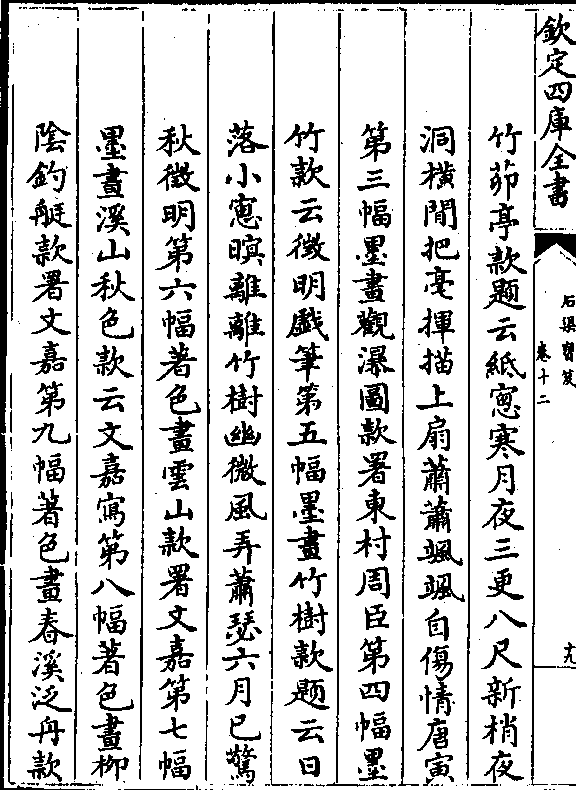 欽定四庫全書
石渠寶笈
卷十二
十九
竹茆亭款題云紙窻寒月夜三更八尺新梢夜
洞橫閒把毫揮描上扇蕭蕭颯颯自傷情唐寅
第三幅墨畫觀瀑圖款署東村周臣第四幅墨
竹款云徵明戲筆第五幅墨畫竹樹款題云日
落小窻暝離離竹樹幽微風弄蕭瑟六月已驚
秋徵明第六幅著色畫雲山款署文嘉第七幅
墨畫溪山秋色款云文嘉寫第八幅著色畫栁
陰釣艇款署文嘉第九幅著色畫春溪泛舟款